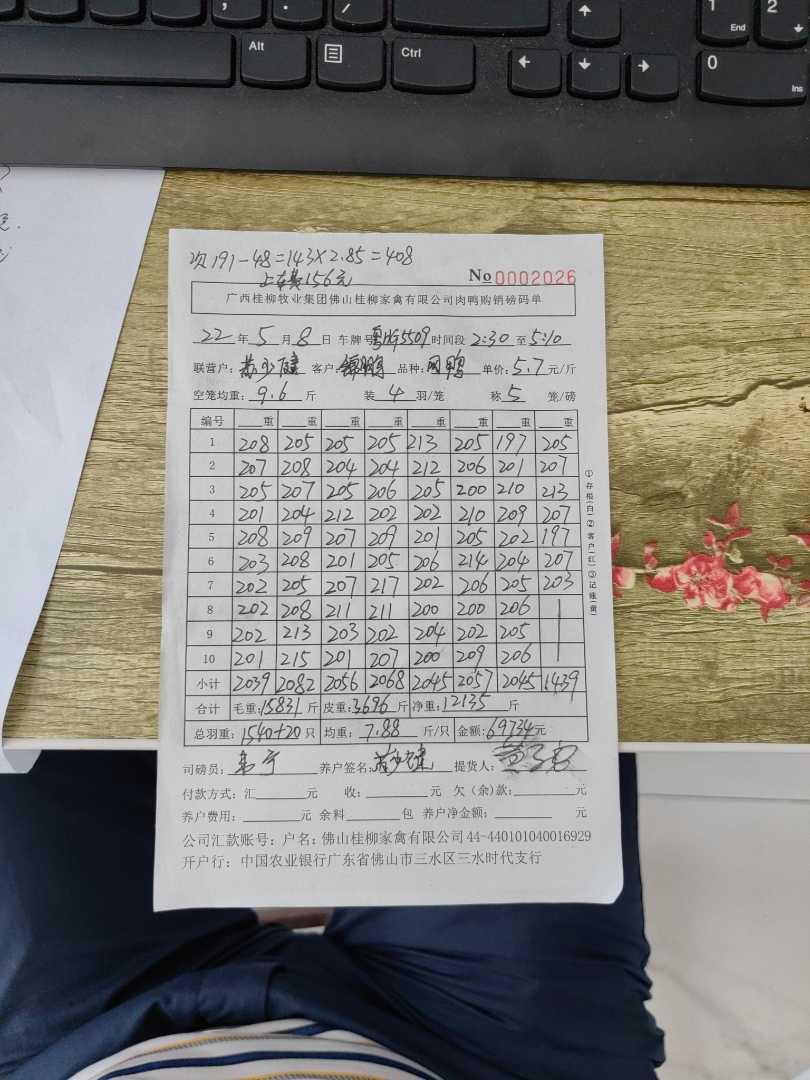 Alt
Ctrl
1
End
2
0
Ins
次191-48=143×2.85=408
上车费156元
No 0002026
广西桂柳牧业集团佛山桂柳家禽有限公司肉鸭购销磅码单
22年5月8日 车牌号 5509 时间段 2:30至5:10
联营户: 客户: 品种: 鸭 单价:5.7元/斤
空笼均重:9.6斤 装4羽/笼 称5笼/磅
编号 重 重 重 重 重 重 重 重
1 208 205 205 205 213 205 197 205
2 207 208 204 204 212 206 201 207
3 205 207 205 206 205 200 210 213
4 201 204 212 202 202 210 209 207
5 208 209 207 209 201 205 202 197
6 203 208 201 205 206 214 204 207
7 202 205 207 217 202 206 205 203
8 202 208 211 211 200 200 206
9 202 213 203 202 204 202 205
10 201 215 201 207 200 209 206
小计 2039 2082 2056 2068 2045 2057 2045 1439
合计 毛重:15831斤 皮重:3696斤 净重:12135斤
总羽重:1540+20只 均重:7.88斤/只 金额:69734元
①存根(白)②客户(红)③记账(黄)
司磅员: 养户签名: 提货人:
付款方式:汇 元 收: 元 欠(余)款: 元
养户费用: 元 余料 包 养户净金额: 元
公司汇款账号:户名:佛山桂柳家禽有限公司44-440101040016929
开户行:中国农业银行广东省佛山市三水区三水时代支行